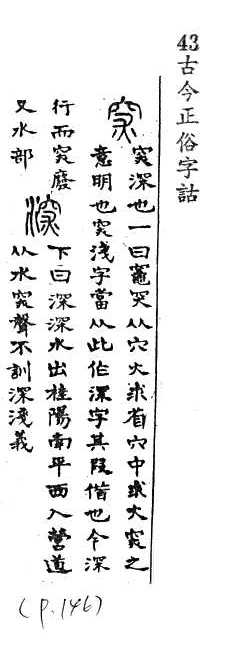 43古今正俗字詁
𥥍
𥥍深也一曰竈突从穴火求省穴中求火𥥍之
意明也𥥍淺字當从此作深字其叚借也今深
行而𥥍廢
又水部
深
下曰深深水出桂陽南平西入營道
从水𥥍聲不訓深淺義
(P.146)